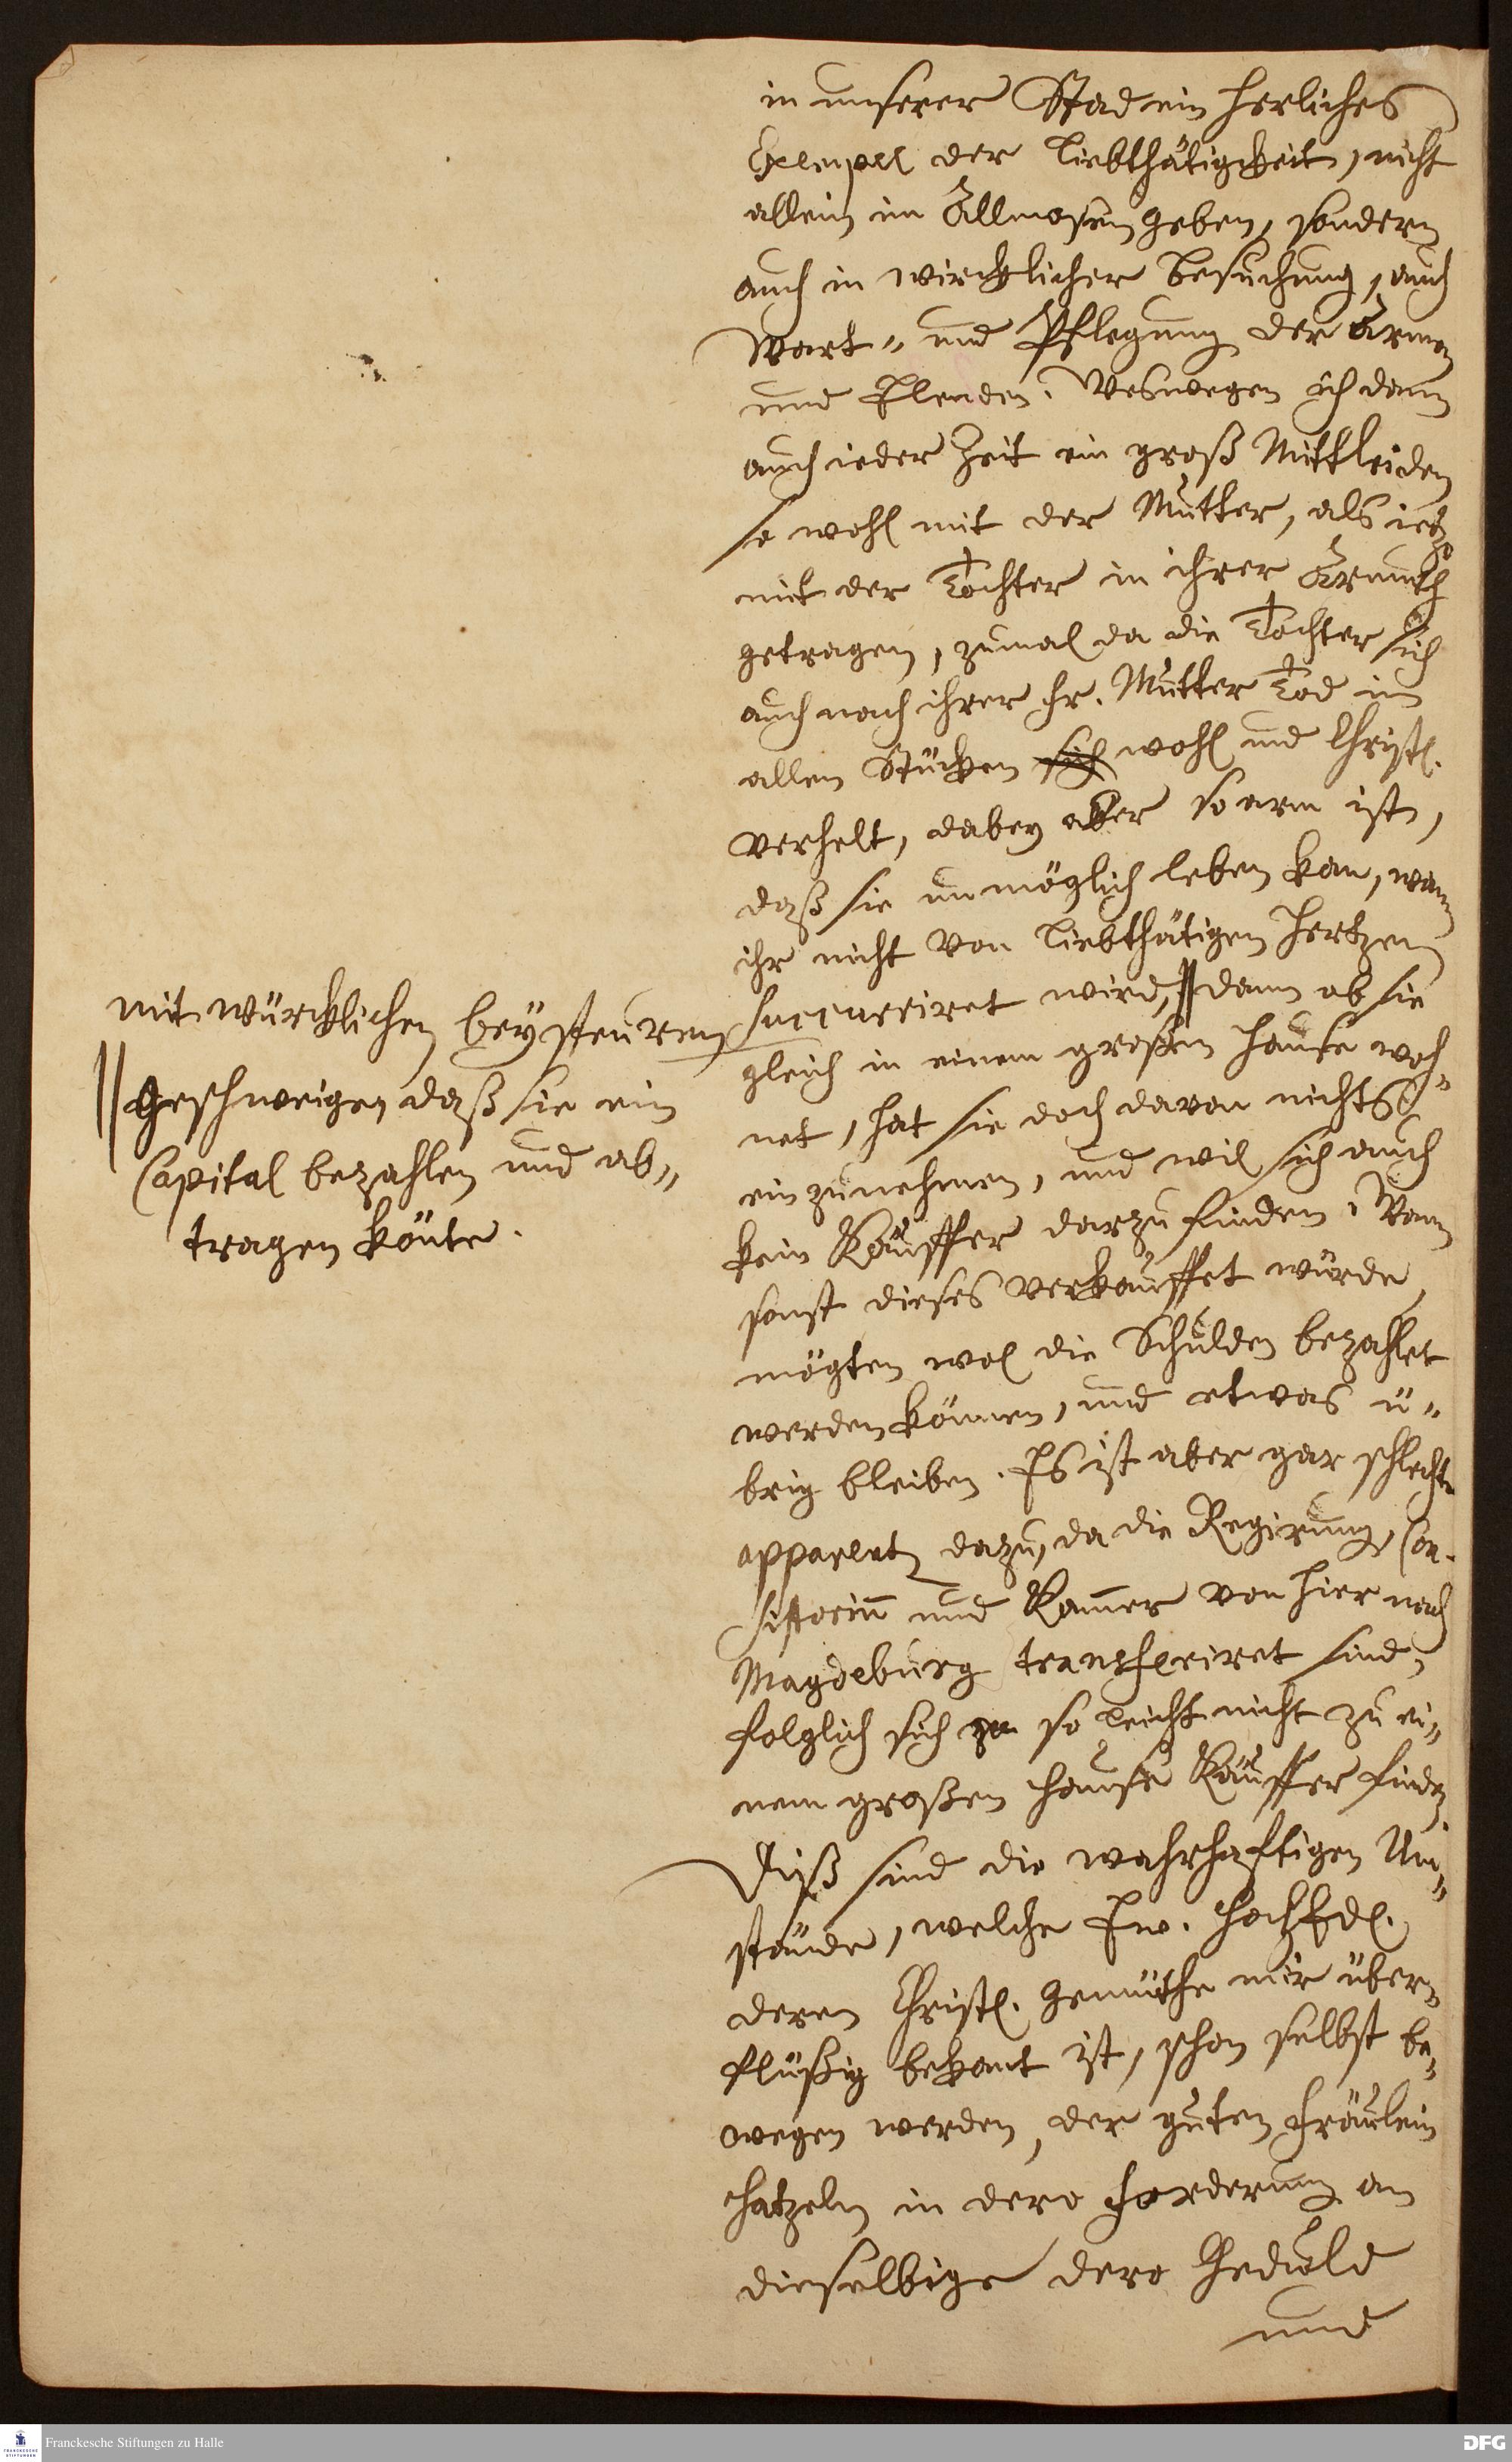 in unserer Stad ein herliches
Exempel der Liebthätigkeit, nicht
allein im Allmosen geben, sondern
auch in wircklicher Besuchung, auch
Wart- und Pflegung der Armen
und Elenden. Weswegen ich dann
auch ieder Zeit ein groß Mittleiden
so wohl mit der Mutter, als ietzo
mit der Tochter in ihrer Armuth
getragen, zumal da die Tochter sich
auch nach ihrer Fr. Mutter Tod in
allen Stücken sich wohl und Christl.
verhelt, dabey aber so arm ist,
daß sie unmöglich leben kan, wann
ihr nicht von Liebthätigen Hertzen
mit würcklichen beysteuren succurriret wird, || dann ob sie
gleich in einem großen Hause woh-
net, hat sie doch davon nichts
einzunehmen, und wil sich auch
kein Käuffer darzu finden. Wann
sonst dieses verkauffet würde,
mögten wol die Schulden bezahlet
werden können, und etwas ü-
brig bleiben. Es ist aber gar schlechte
apparentz dazu, da die Regirung, Con-
sistorium und Kammer von hier nach
Magdeburg transferiret sind,
folglich sich so leicht nicht zu ei-
nem großen Hause Käuffer finden.
Diß sind die wahrhafftigen Um-
stände, welche Ew. HochEdl.
deren Christl. Gemüthe mir über-
flüßig bekant ist, schon selbst be-
wegen werden, der guten Fräulein
Hatzeln in dero Forderung an
dieselbige dero Gedult
und
|| Geschweigen daß sie ein
Capital bezahlen und ab-
tragen könte.
Franckesche Stiftungen zu Halle
DFG